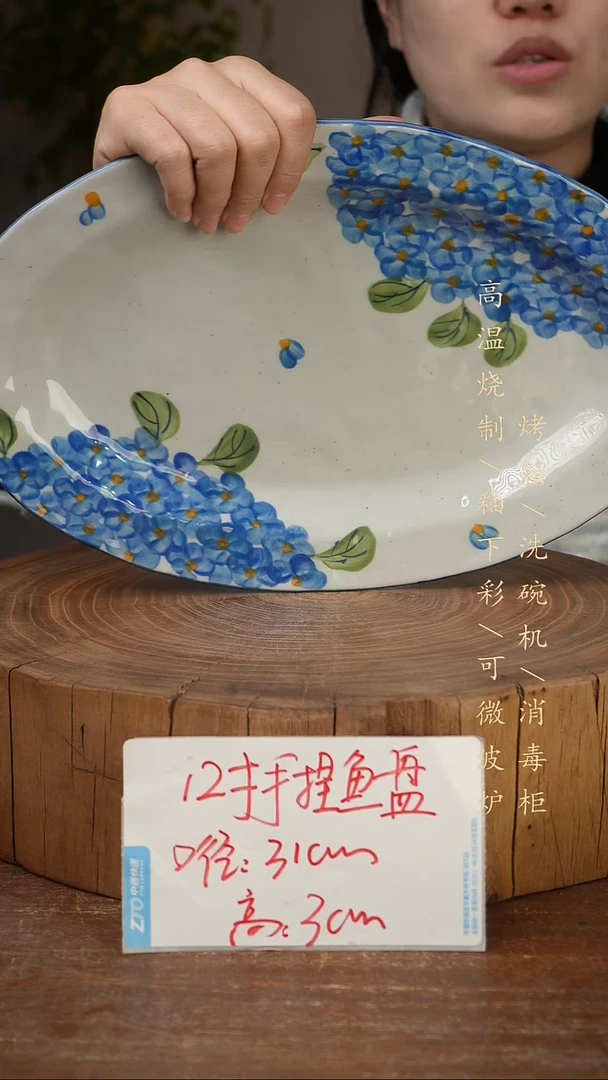 高温烧制/釉下彩/可微波炉
烤箱/洗碗机/消毒柜
12寸手捏鱼盘
口径:31cm
高:3cm
ZTO中通快递